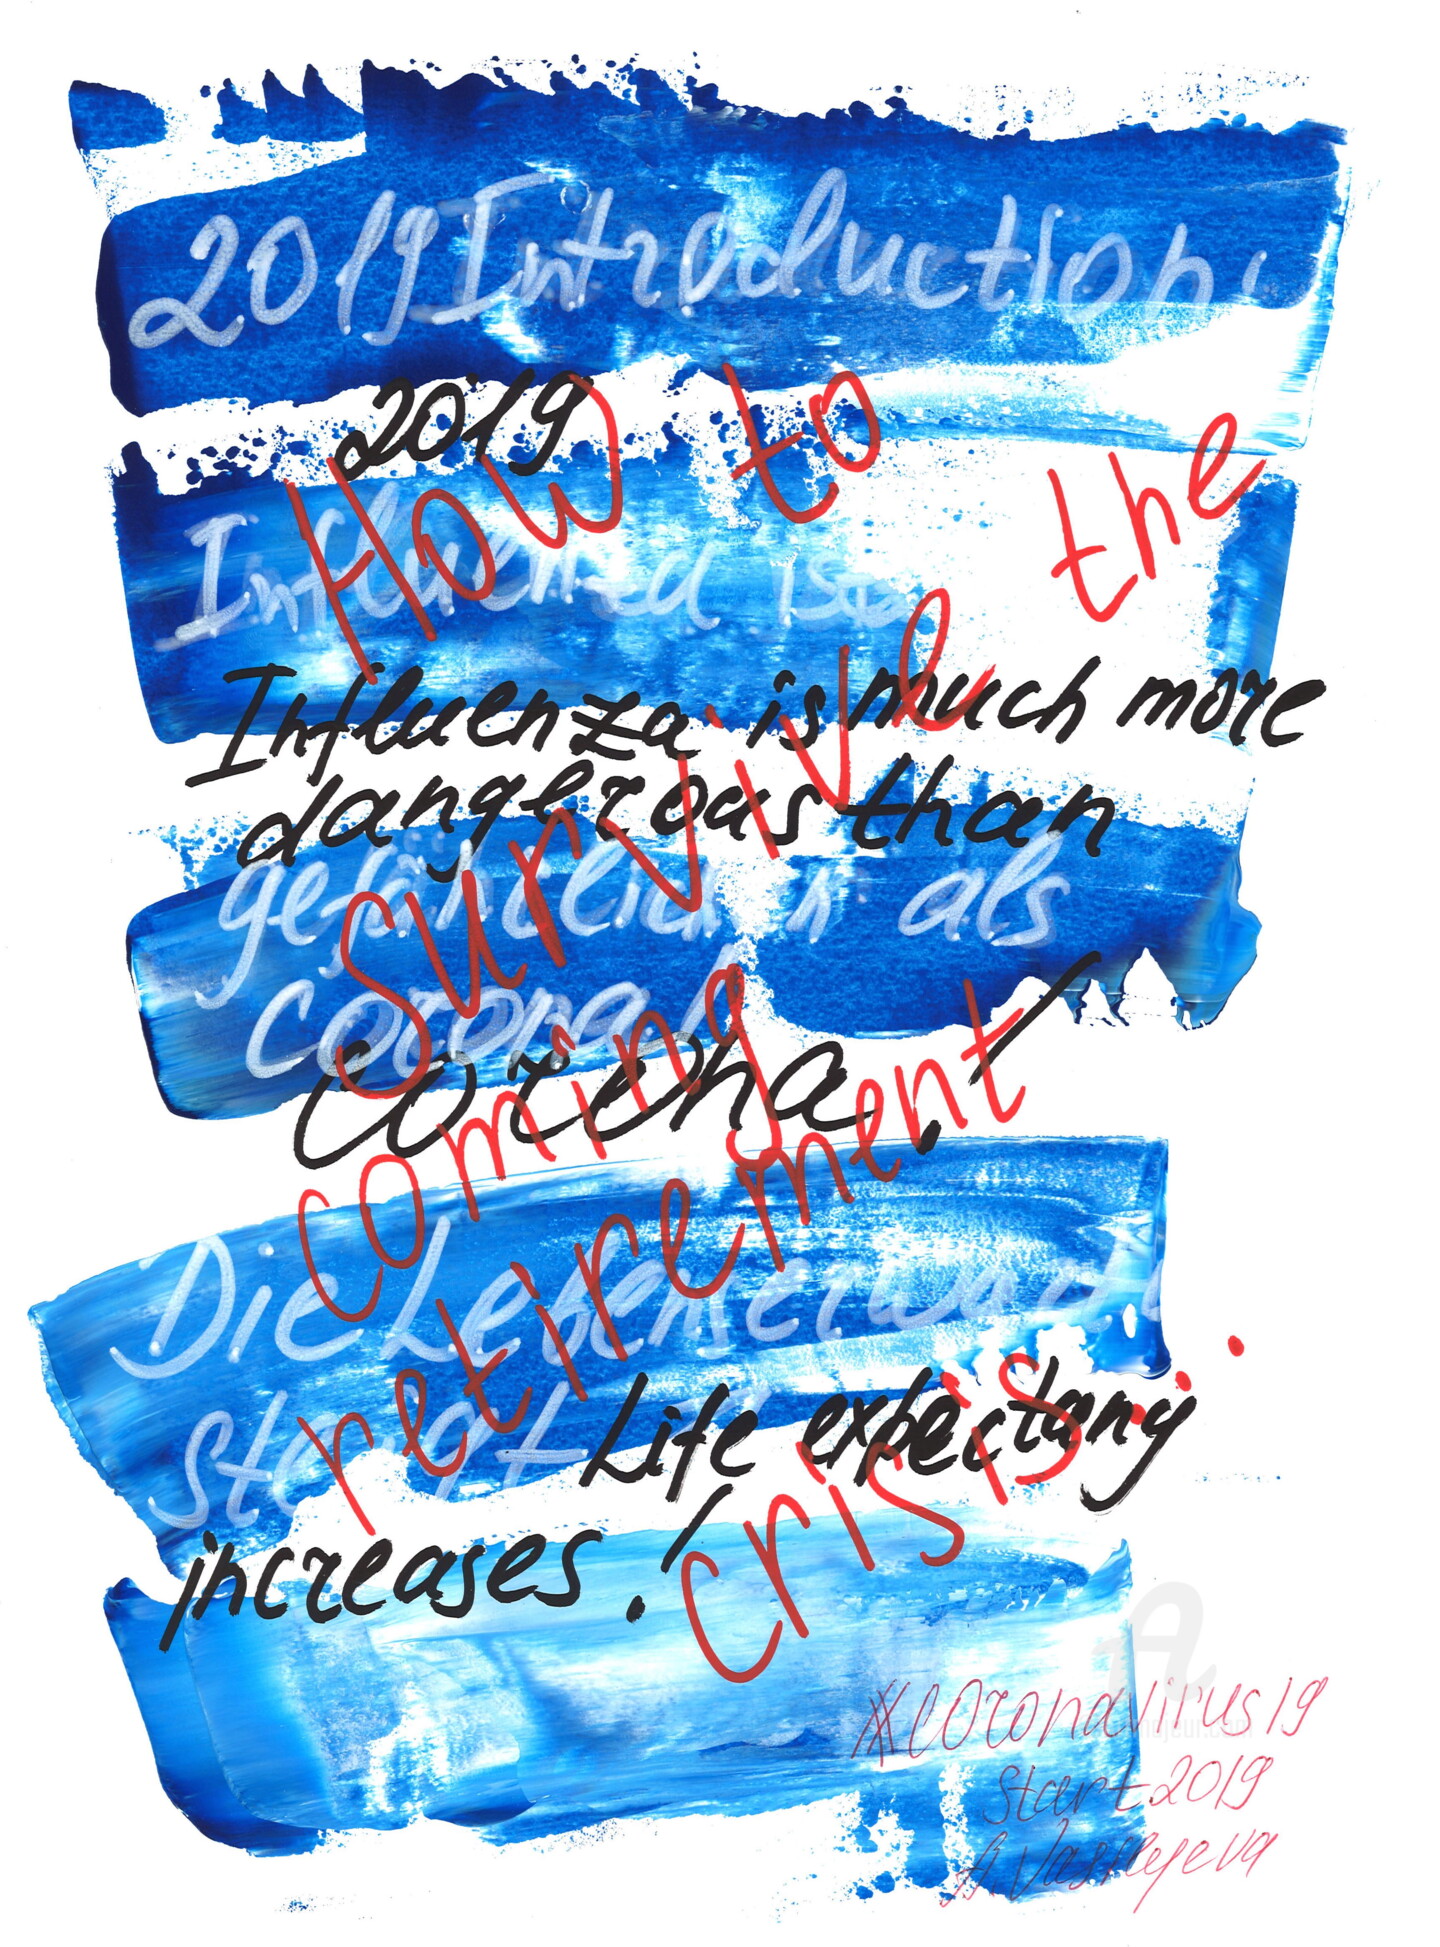 2019 Introduction:
2019
Influenza ist
Influenza is much more
dangerous than
gefährlicher als
corona!
corona!
Die Lebenserwart
steigt
Life expectany
increases.!
How to
survive the
coming
retirement
crisis.
#coronavirus19
start.2019
A.Vasilyeva